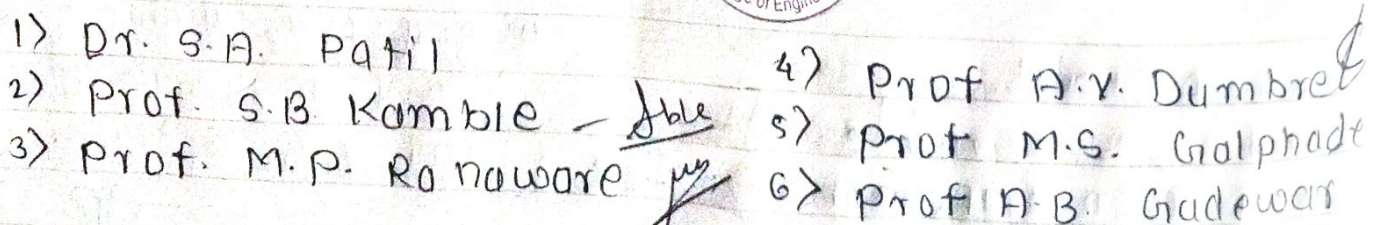 of Engin
1) Dr. S.A. Patil
2) Prof. S.B Kamble -
3) Prof. M.P. Ranaware
4) Prof A.V. Dumbre
5) Prof M.S. Galphade
6) Prof A.B. Gadewar